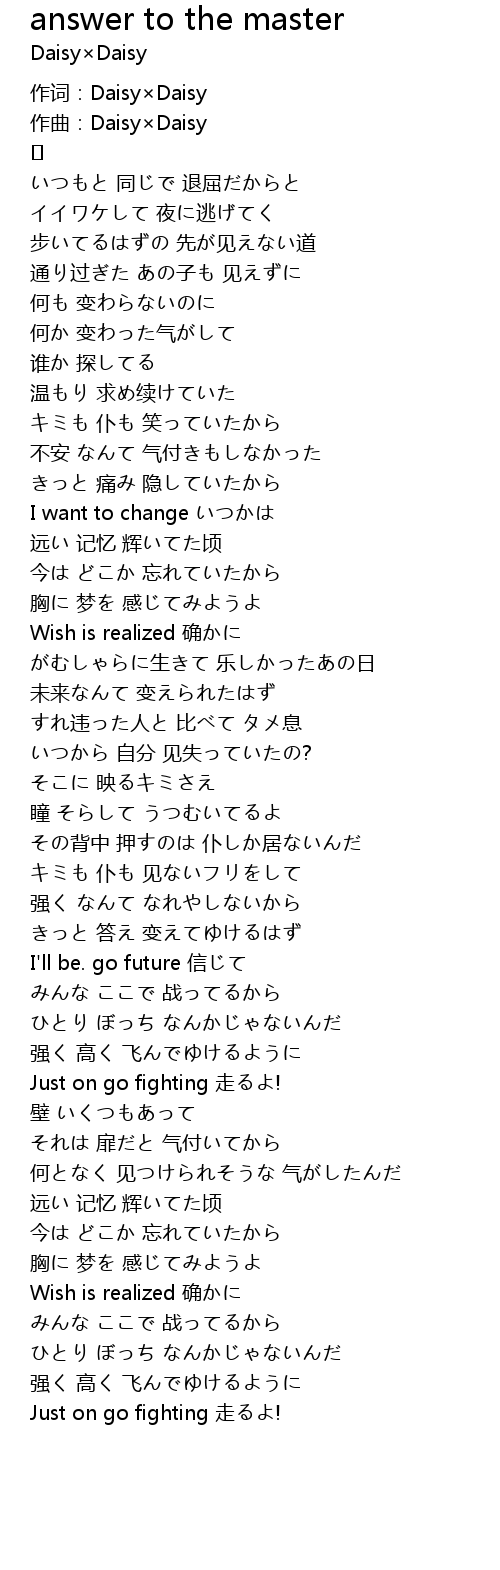 answer to the master
Daisy×Daisy
作词：Daisy×Daisy
作曲：Daisy×Daisy
[]
いつもと 同じで 退屈だからと
イイワケして 夜に逃げてく
步いてるはずの 先が见えない道
通り过ぎた あの子も 见えずに
何も 变わらないのに
何か 变わった气がして
谁か 探してる
温もり 求め续けていた
キミも 仆も 笑っていたから
不安 なんて 气付きもしなかった
きっと 痛み 隐していたから
I want to change いつかは
远い 记忆 辉いてた顷
今は どこか 忘れていたから
胸に 梦を 感じてみようよ
Wish is realized 确かに
がむしゃらに生きて 乐しかったあの日
未来なんて 变えられたはず
すれ违った人と 比べて タメ息
いつから 自分 见失っていたの?
そこに 映るキミさえ
瞳 そらして うつむいてるよ
その背中 押すのは 仆しか居ないんだ
キミも 仆も 见ないフリをして
强く なんて なれやしないから
きっと 答え 变えてゆけるはず
I'll be. go future 信じて
みんな ここで 战ってるから
ひとり ぼっち なんかじゃないんだ
强く 高く 飞んでゆけるように
Just on go fighting 走るよ!
壁 いくつもあって
それは 扉だと 气付いてから
何となく 见つけられそうな 气がしたんだ
远い 记忆 辉いてた顷
今は どこか 忘れていたから
胸に 梦を 感じてみようよ
Wish is realized 确かに
みんな ここで 战ってるから
ひとり ぼっち なんかじゃないんだ
强く 高く 飞んでゆけるように
Just on go fighting 走るよ!